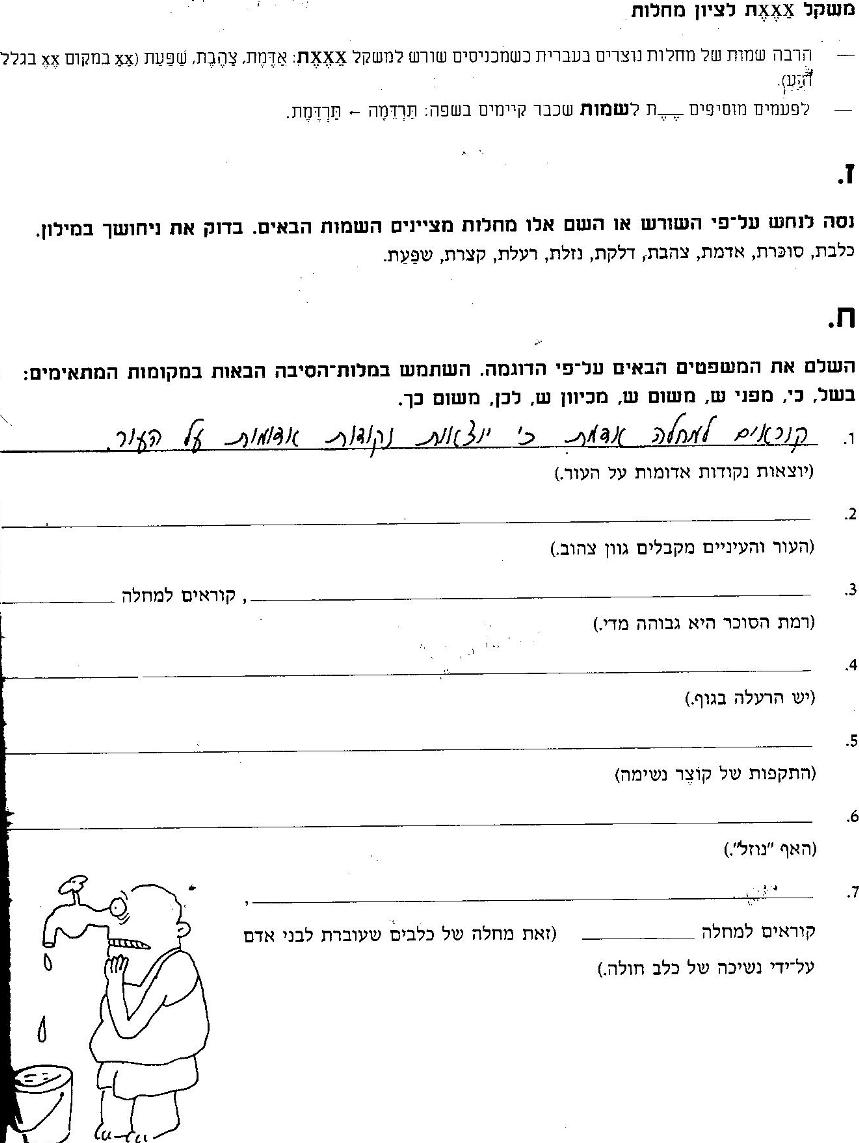 משקל XַXֶּXֶת לציון מחלות
— הרבה שמות של מחלות נוצרים בעברית כשמכניסים שורש למשקל XַXֶּXֶת: אַדֶּמֶת, צַהֶבֶת, שַׁפַּעַת (XַXַ במקום XֶXֶ בגלל
הע').
— לפעמים מוסיפים ־ֶ־ֶת לשמות שכבר קיימים בשפה: תַּרְדֵּמָה ← תַּרְדֶּמֶת.
ז.
נסה לנחש על־פי השורש או השם אלו מחלות מציינים השמות הבאים. בדוק את ניחושך במילון.
כלבת, סוכרת, אדמת, צהבת, דלקת, נזלת, רעלת, קצרת, שפַּעַת.
ח.
השלם את המשפטים הבאים על־פי הדוגמה. השתמש במלות־הסיבה הבאות במקומות המתאימים:
בשל, כי, מפני ש, משום ש, מכיוון ש, לכן, משום כך.
1. קוראים למחלה אדמת כי יוצאות נקודות אדומות על העור.
(יוצאות נקודות אדומות על העור.)
2. ____________________
(העור והעיניים מקבלים גוון צהוב.)
3. ____________________, קוראים למחלה __________
(רמת הסוכר היא גבוהה מדי.)
4. ____________________
(יש הרעלה בגוף.)
5. ____________________
(התקפות של קוֹצֶר נשימה)
6. ____________________
(האף "נוזל".)
7. ____________________,
קוראים למחלה __________ (זאת מחלה של כלבים שעוברת לבני אדם
על־ידי נשיכה של כלב חולה.)